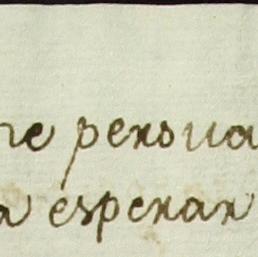 re persua
a esperar